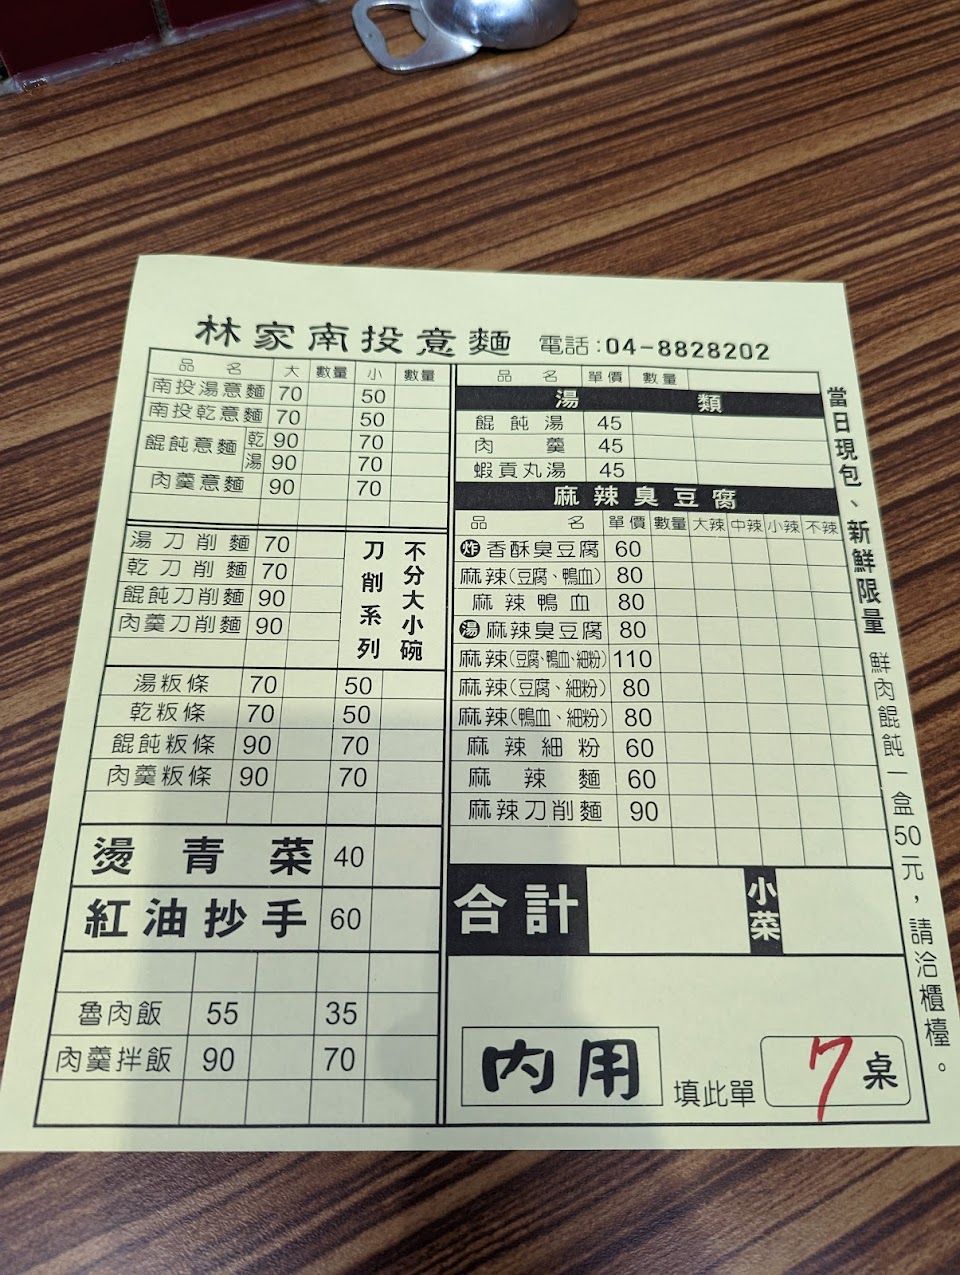 林家南投意麵 電話:04-8828202
品名 大 數量 小 數量
南投湯意麵 70 50
南投乾意麵 70 50
餛飩意麵 乾 90 70
湯 90 70
肉羹意麵 90 70
湯刀削麵 70
乾刀削麵 70
餛飩刀削麵 90
肉羹刀削麵 90
刀削系列
不分大小碗
湯粄條 70 50
乾粄條 70 50
餛飩粄條 90 70
肉羹粄條 90 70
燙青菜 40
紅油抄手 60
魯肉飯 55 35
肉羹拌飯 90 70
品名 單價 數量
湯類
餛飩湯 45
肉羹 45
蝦貢丸湯 45
麻辣臭豆腐
品名 單價 數量 大辣 中辣 小辣 不辣
炸 香酥臭豆腐 60
麻辣(豆腐、鴨血) 80
麻辣鴨血 80
湯 麻辣臭豆腐 80
麻辣(豆腐、鴨血、細粉) 110
麻辣(豆腐、細粉) 80
麻辣(鴨血、細粉) 80
麻辣細粉 60
麻辣麵 60
麻辣刀削麵 90
合計 小菜
內用 填此單 7 桌
當日現包、新鮮限量 鮮肉餛飩一盒50元，請洽櫃檯。